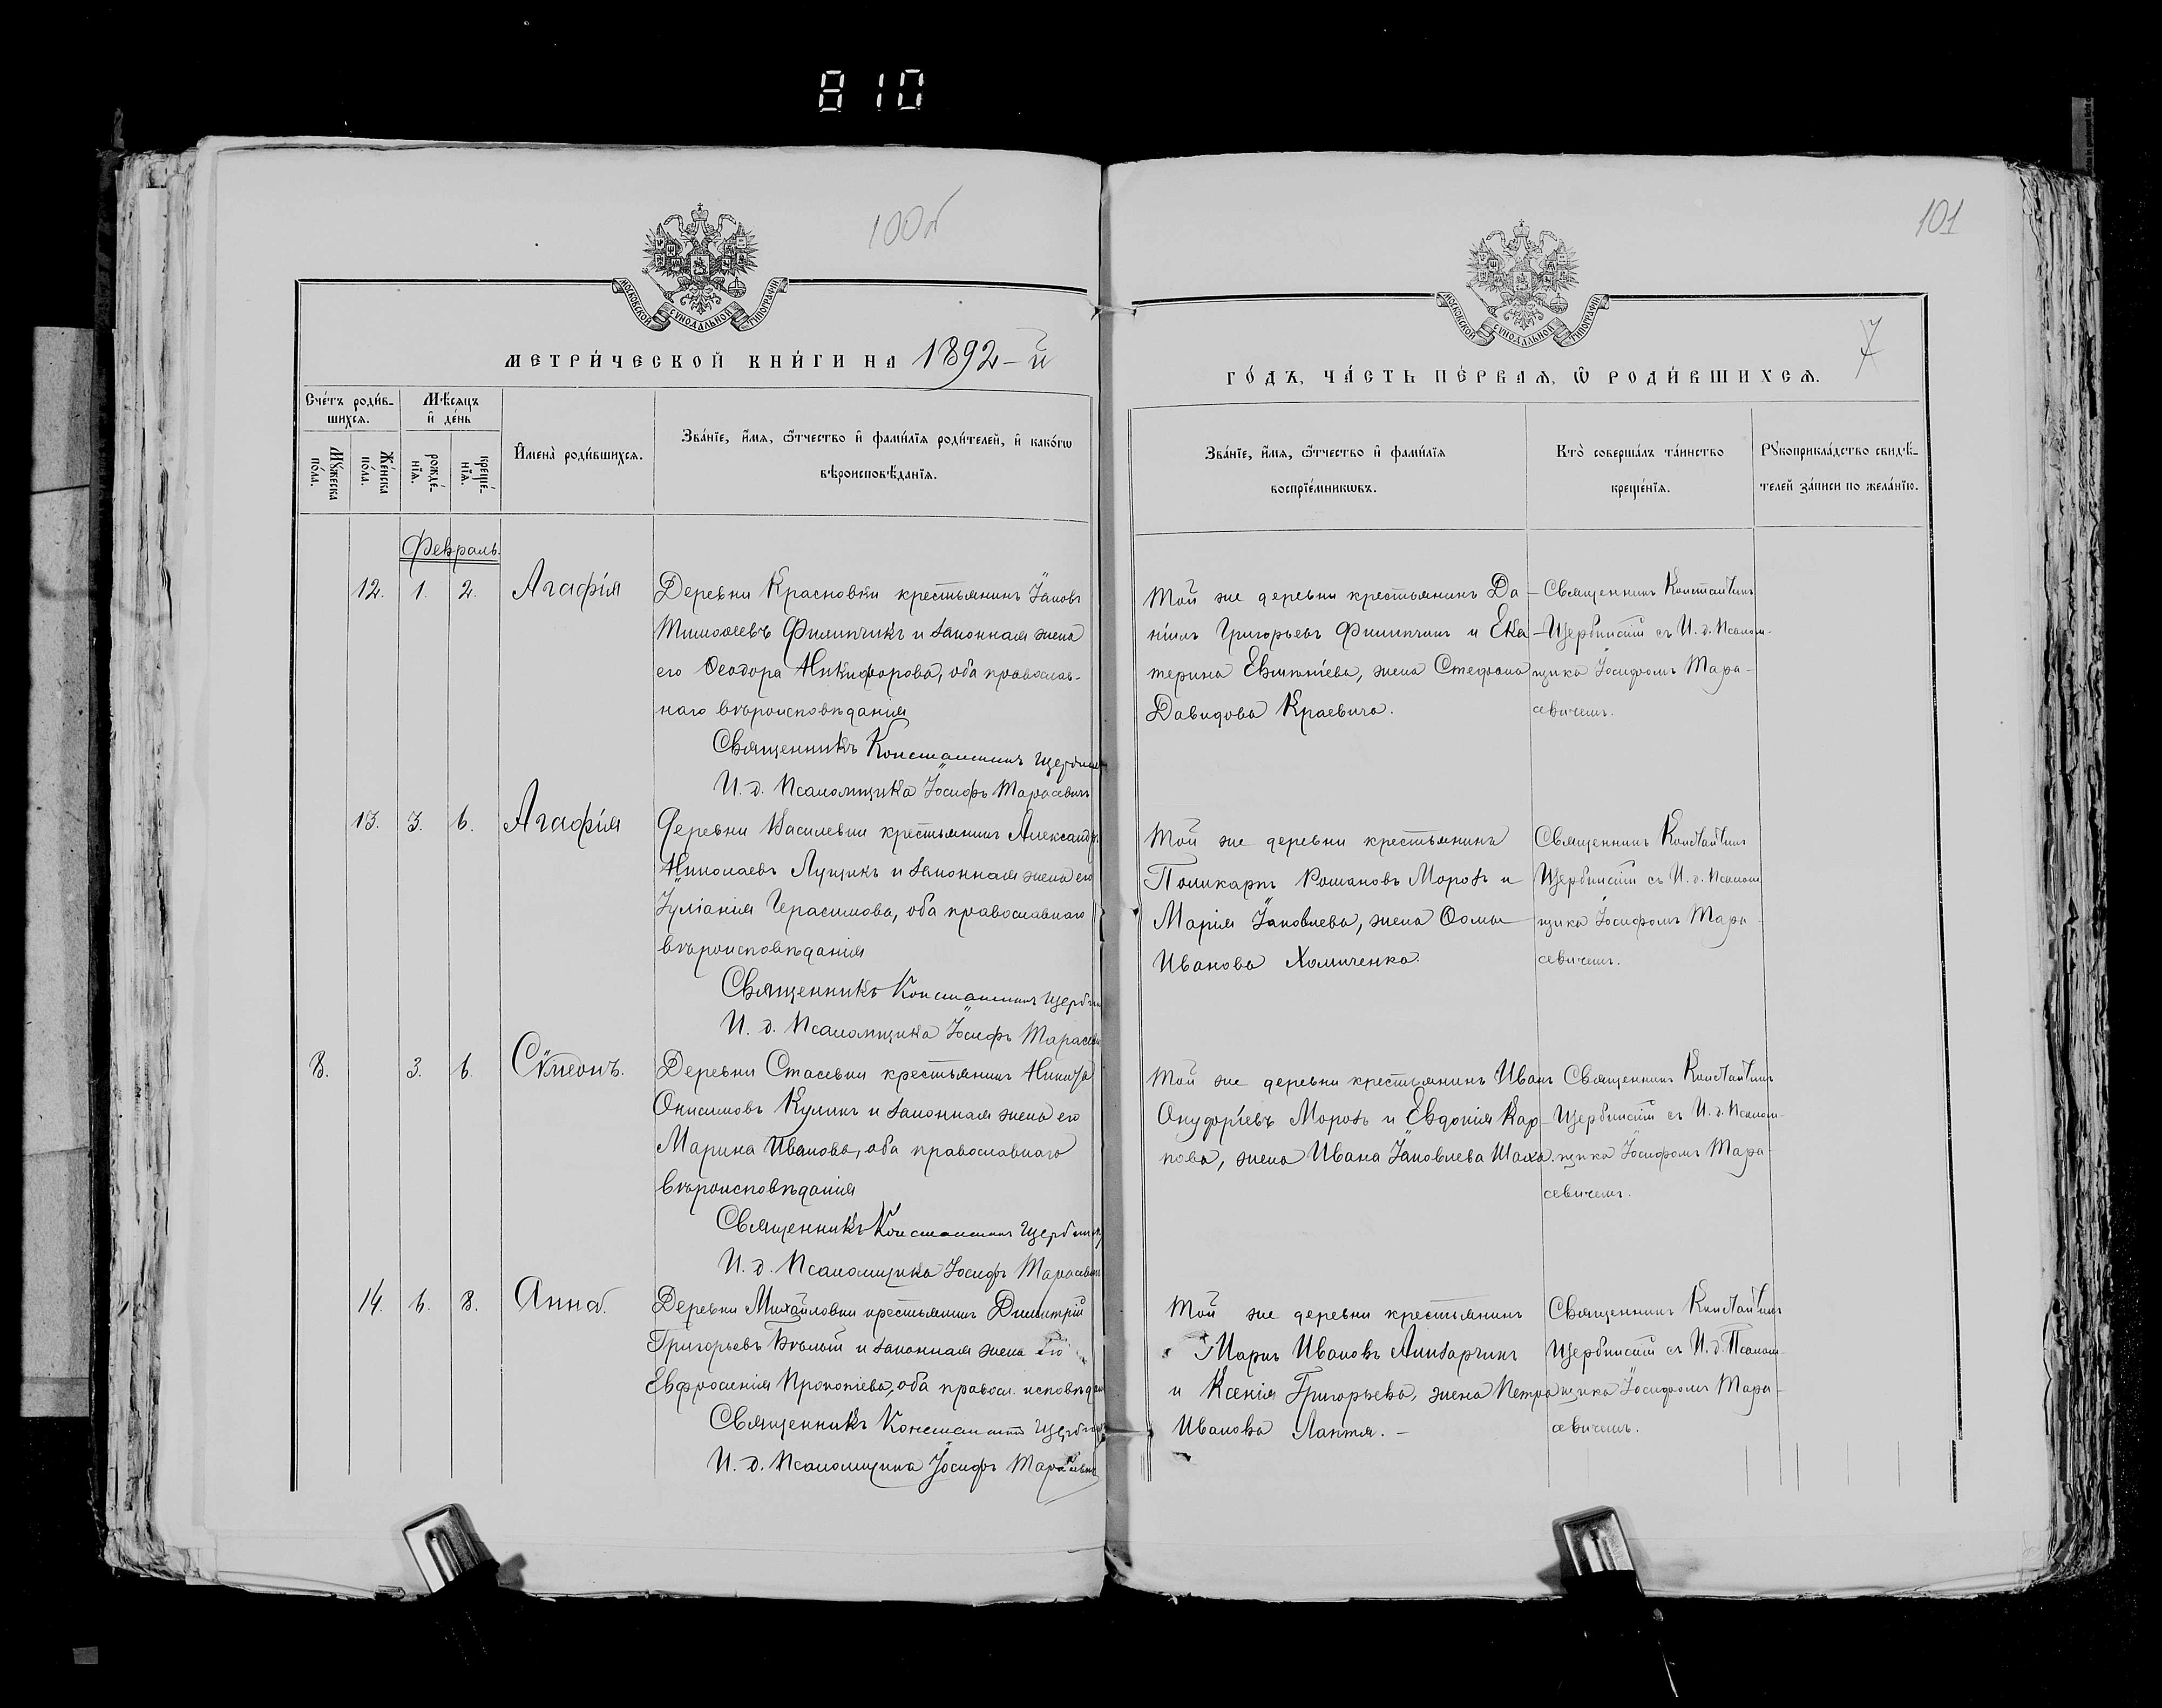 810
100б
101
7
МОСКОВСКОЙ СУНОДАЛЬНОЙ ТИПОГРАФІИ
МОСКОВСКОЙ СУНОДАЛЬНОЙ ТИПОГРАФІИ
МЕТРИ́ЧЕСКОЙ КНИ́ГИ НА 1892-й
ГО́ДЪ, ЧА́СТЬ ПЕ́РВАѦ, Ѿ РОДИ́ВШИХСѦ.
Сче́тъ роди́в-
шихсѧ.
Мѣ́сяцъ
и҆ де́нь
Мꙋ́жеска по́ла.
Же́нска по́ла.
рожде́-нїѧ.
креще́-нїѧ.
И҆мена̀ роди́вшихсѧ.
Зва́нїе, и҆́мѧ, ѻ҆́тчество и҆ фами́лїѧ роди́телей, и҆ како́гѡ
вѣроисповѣ́данїѧ.
Зва́нїе, и҆́мѧ, ѻ҆́тчество и҆ фами́лїѧ
воспрїе́мникѡвъ.
Кто̀ соверша́лъ та́инство
креще́нїѧ.
Рꙋкоприкла́дство свидѣ́-
телей за́писи по жела́нїю.
Февраль.
12. 1. 2. Агафія
Деревни Красновки крестьянинъ Іаковъ
Тимоѳеевъ Филипчикъ и законная жена
его Ѳеодора Никифорова, оба православ-
наго вѣроисповѣданія
Священникъ Константинъ
И. д. Псаломщика Іосифъ Тарасевич
Той же деревни крестьянинъ Да-
ніилъ Григорьевъ Филипчикъ и Ека-
терина Евѳиміева, жена Стефана
Давидова Краевича.
Священникъ Константинъ
Щербинскій съ И. д. Псалом-
щика Іосифомъ Тара-
севичемъ.
13. 3. 6. Агафія
Деревни Василевки крестьянинъ Александръ
Николаевъ Лущикъ и законная жена его
Іуліанія Герасимова, оба православнаго
вѣроисповѣданія
Священникъ Константинъ
И. д. Псаломщика Іосифъ
Той же деревни крестьянинъ
Поликарпъ Романовъ Морозъ и
Марія Іаковлева, жена Ѳомы
Иванова Хомиченка.
Священникъ Константинъ
Щербинскій съ И. д. Псалом
щика Іосифомъ Тара-
севичемъ.
8. 3. 6. Сѵмеонъ.
Деревни Стасевки крестьянинъ Никита
Онисимовъ Куликъ и законная жена его
Марина Иванова, оба православнаго
вѣроисповѣданія
Священникъ Константинъ
И. д. Псаломщика Іосифъ Тарасевич
Той же деревни крестьянинъ Иванъ
Онуфріевъ Морозъ и Евдокія Кар-
пова, жена Ивана Іаковлева Шаха.
Священникъ Константинъ
Щербинскій съ И. д. Псалом-
щика Іосифомъ Тара-
севичемъ.
14. 6. 8. Анна.
Деревни Михайловки крестьянинъ Димитрій
Григорьевъ Бѣлый и законная жена его
Евфросинія Прокопіева, оба правосл. исповѣдан
Священникъ Константинъ
И. д. Псаломщика Іосифъ Тарасевич
Той же деревни крестьянинъ
Маркъ Ивановъ
и Ксенія Григорьева, жена Петра
Иванова Лаптя. –
Священникъ Константинъ
Щербинскій съ И. д. Псалом-
щика Іосифомъ Тара-
севичемъ.